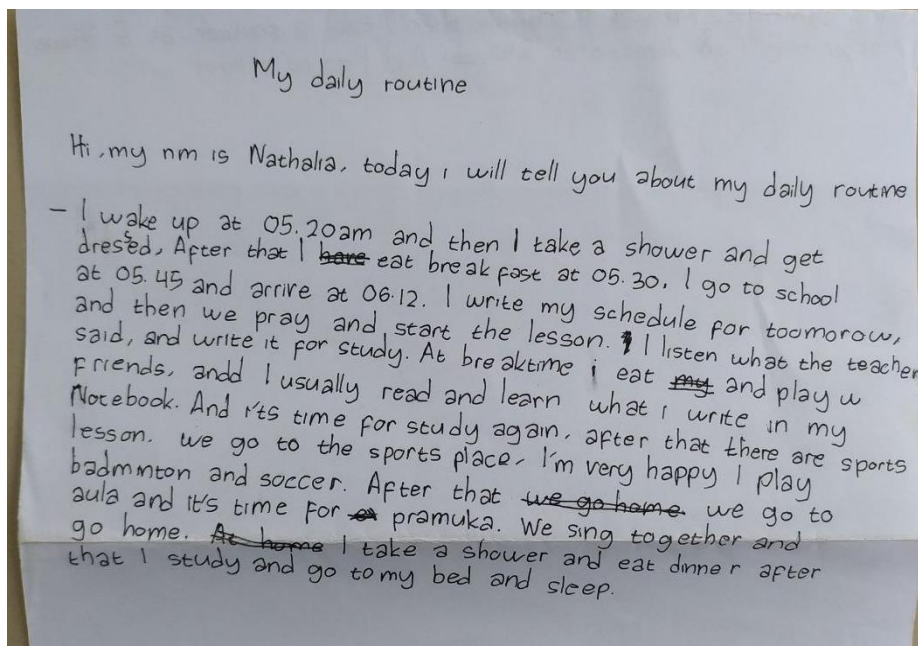 My daily routine
Hi, my nm is Nathalia, today i will tell you about my daily routine
- I wake up at 05.20am and then I take a shower and get
dressed, After that I have eat break fast at 05.30. I go to school
at 05.45 and arrive at 06.12. I write my schedule for toomorow,
and then we pray and start the lesson. I listen what the teacher
said, and write it for study. At breaktime i eat my and play w
Friends, andd I usually read and learn what i write in my
Notebook. And it's time for study again, after that there are sports
lesson. we go to the sports place, I'm very happy I play
badmnton and soccer. After that we go home we go to
aula and it's time for pramuka. We sing together and
go home. At home I take a shower and eat dinner after
that I study and go to my bed and sleep.